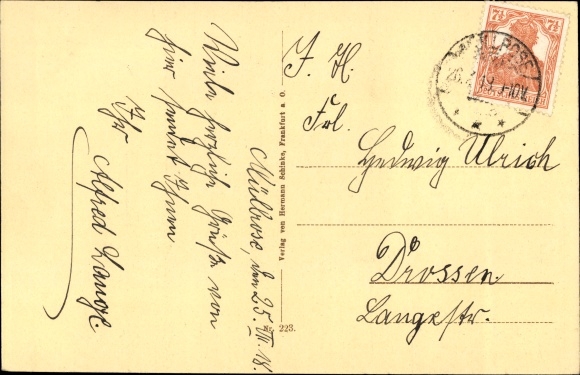 Müllrose, den 25. VII. 18.
Viele herzliche Grüße von
hier sendet Ihnen
Ihr
Alfred Lange.
Verlag von Hermann Schinke, Frankfurt a. O.
Nr. 223.
7½
7½
MÜLLROSE
J. H.
Frl.
Hedwig Ulrich
Drossen
Langestr.